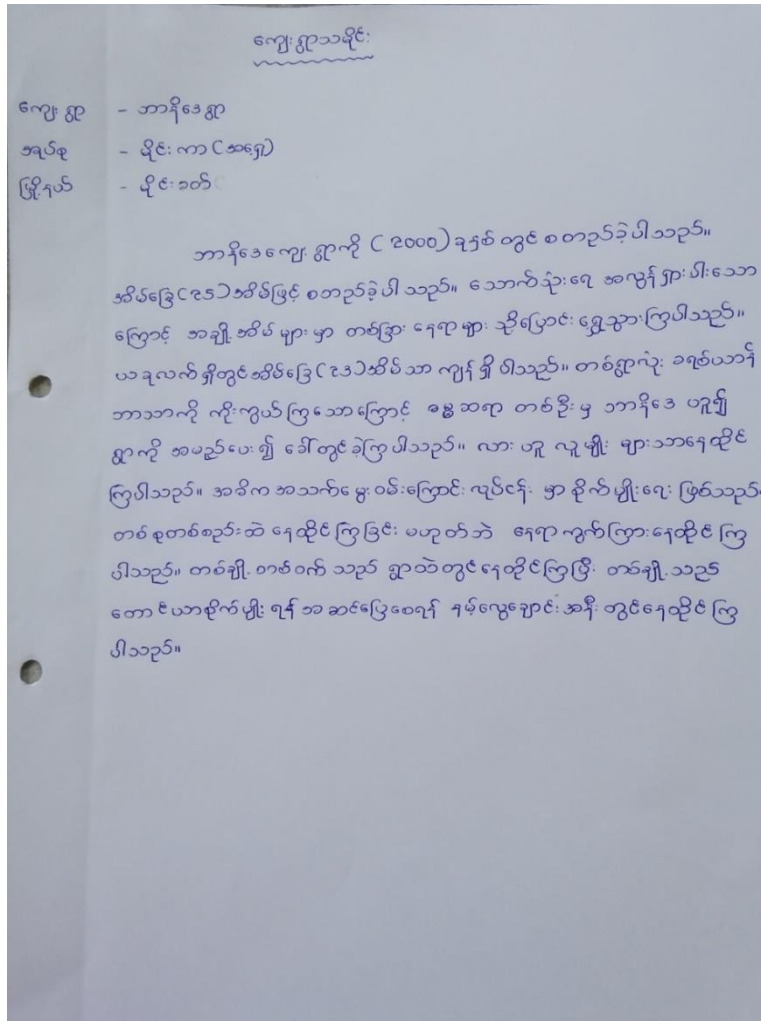 ကျေးရွာသမိုင်း
ကျေးရွာ - ဘာနိဒေရွာ
အုပ်စု - မိုင်းကာ (အရှေ့)
မြို့နယ် - မိုင်းခတ်
ဘာနိဒေကျေးရွာကို (2000) ခုနှစ်တွင် စတည်ခဲ့ပါသည်။
အိမ်ခြေ(25)အိမ်ဖြင့် စတည်ခဲ့ပါသည်။ သောက်သုံးရေ အလွန်ရှားပါးသော
ကြောင့် အချို့အိမ်များမှာ တစ်ခြားနေရာများ သို့ပြောင်းရွှေ့သွားကြပါသည်။
ယခုလက်ရှိတွင်အိမ်ခြေ(23)အိမ်သာ ကျန်ရှိပါသည်။ တစ်ရွာလုံး ခရစ်ယာန်
ဘာသာကို ကိုးကွယ်ကြသောကြောင့် ဓမ္မဆရာ တစ်ဦးမှ ဘာနိဒေ ဟူ၍
ရွာကို အမည်ပေး၍ ခေါ်တွင်ခဲ့ကြပါသည်။ လားဟူ လူမျိုးများသာနေထိုင်
ကြပါသည်။ အဓိက အသက်မွေးဝမ်းကြောင်းလုပ်ငန်းမှာ စိုက်ပျိုးရေး ဖြစ်သည်။
တစ်စုတစ်စည်းထဲ နေထိုင်ကြခြင်း မဟုတ်ဘဲ နေရာကွက်ကြားနေထိုင်ကြ
ပါသည်။ တစ်ချို့တစ်ဝက်သည် ရွာထဲတွင်နေထိုင်ကြပြီး တစ်ချို့သည်
တောင်ယာစိုက်ပျိုးရန် အဆင်ပြေစေရန် နမ့်လွေချောင်းအနီးတွင်နေထိုင်ကြ
ပါသည်။